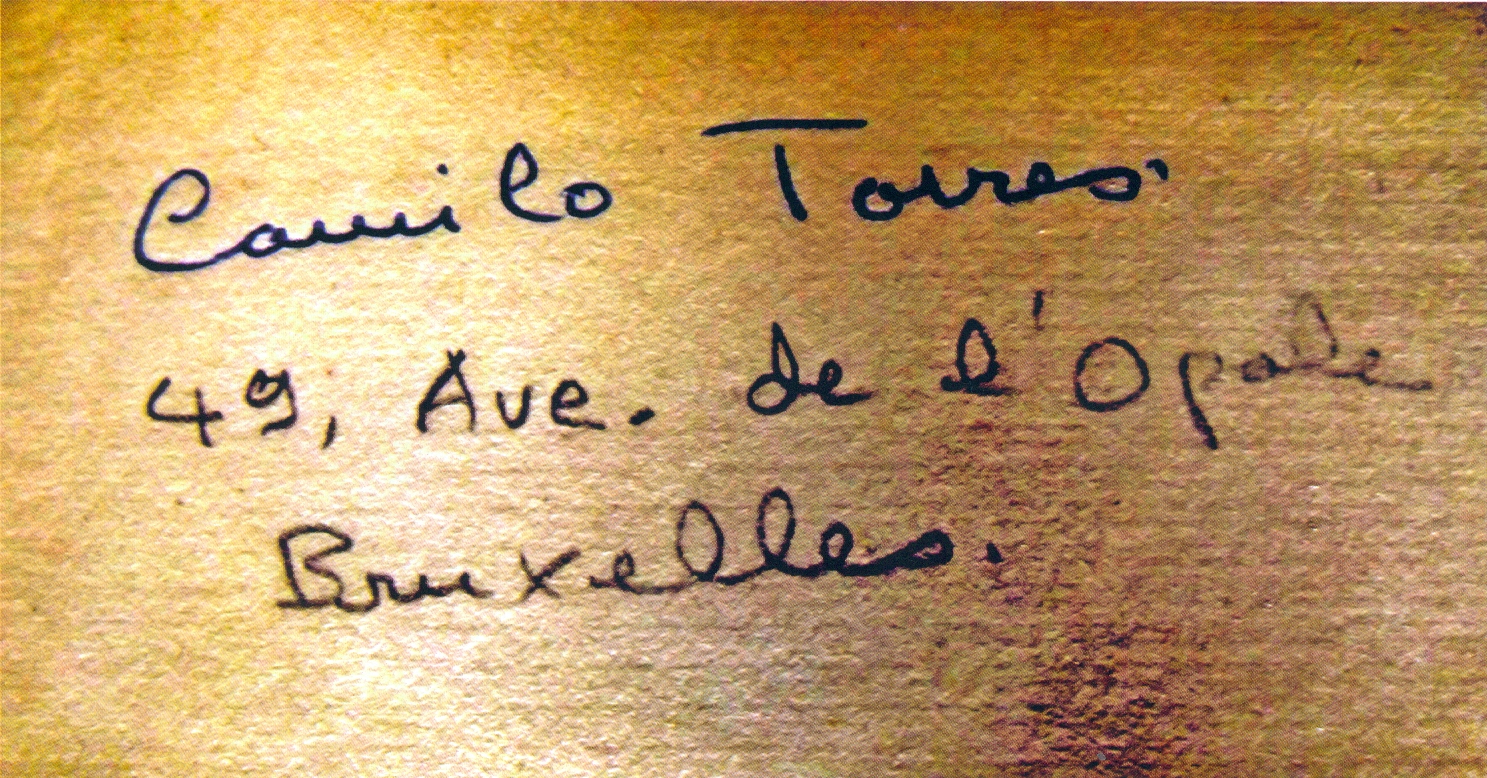 Camilo Torres.
49, Ave. de l'Opale
Bruxelles.